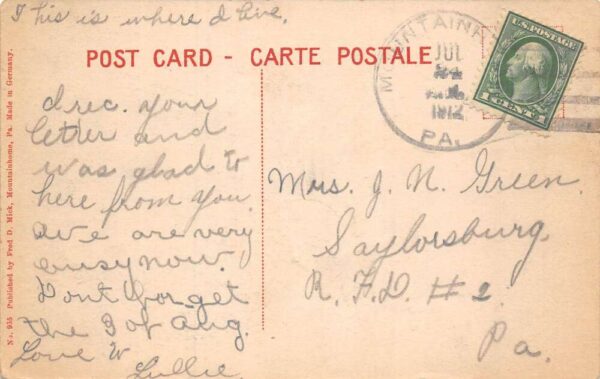 This is where I live.
POST CARD - CARTE POSTALE
I rec. your
letter and
was glad to
here from you.
We are very
busy now.
Dont forget
the 3 of Aug.
Love
Lullie
Mrs. J. N. Green
Saylorsburg
R. F. D. #2
Pa.
MOUNTAINH
JUL
1912
PA.
U.S. POSTAGE
1 CENT 1
No. 935 Published by Fred D. Mick, Mountainhome, Pa. Made in Germany.